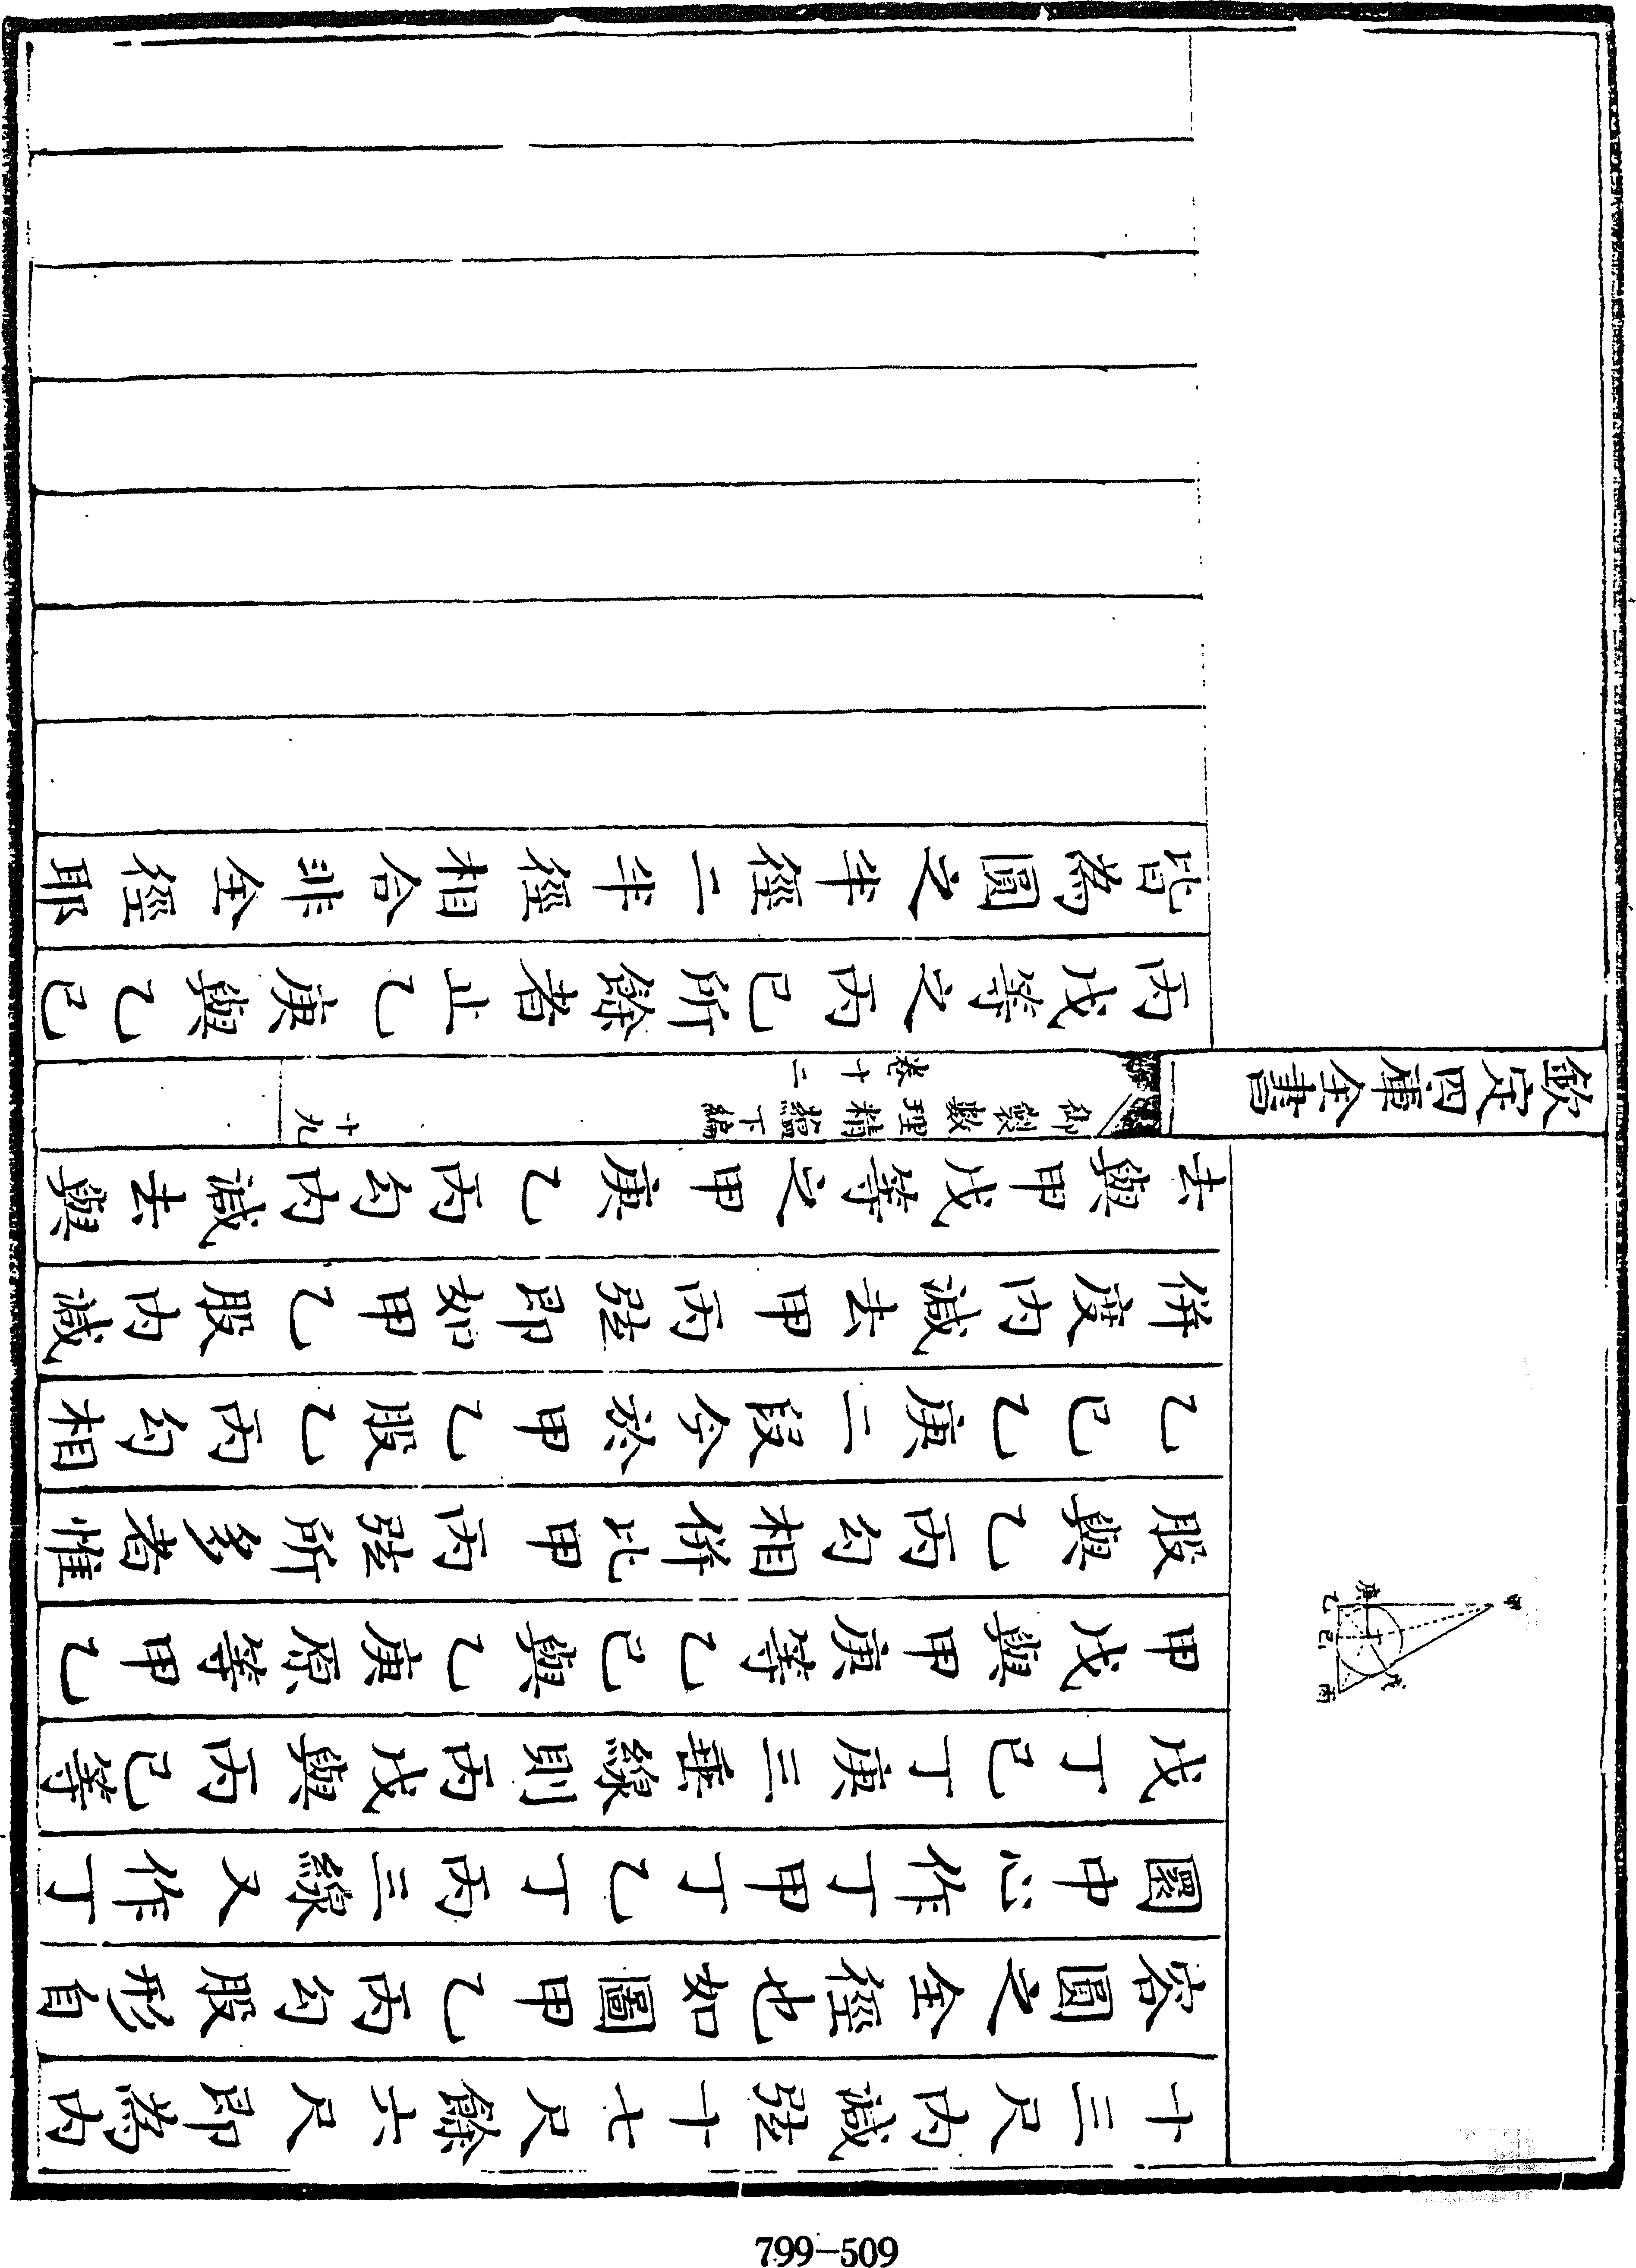 十三尺内減弦十七尺餘六尺即為内
容圓之全徑也如圖甲乙丙勾股形自
圜中心作丁甲丁乙丁丙三線又作丁
戊丁己丁庚三垂線則丙戊與丙己等
甲戊與甲庚等乙己與乙庚原等甲乙
股與乙丙勾相併比甲丙弦所多者惟
乙己乙庚二段今於甲乙股乙丙勾相
併度内減去甲丙弦即如甲乙股内減
去與甲戊等之甲庚乙丙勾内減去與
甲
庚
乙
己
丁
戊
丙
欽定四庫全書
御製數理精藴下編
卷十二
十九
丙戊等之丙己所餘者止乙庚與乙己
皆為圓之半徑二半徑相合非全徑耶
799-509